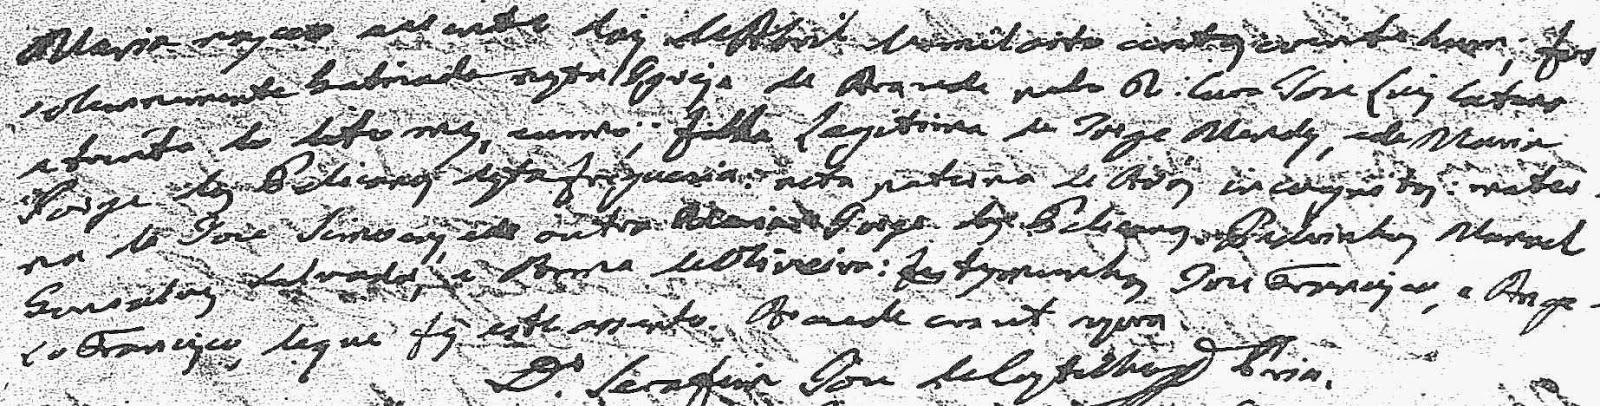 Maria nasceo a vinte dois de Abril de mil oito centos coventa hum; foi
solemnemente Batizada nesta Igreja de Arazede pelo R. Cura Jose Luis Caetano
a trinta do dito mes, e anno; filha Legitima de Jorge Mendes, e de Maria
Jorge dos Pelicanos desta freguesia: neta paterna de Avós incognitos: mater
na de Jose Simoens, e de outra Maria Jorge dos Pelicanos. Padrinhos Manuel
Gonsalves Salvador, e Anna de Oliveira: testemunhas Jose Francisco, e Ange
lo Francisco, de que fis este assento. Arazede era ut supra.
D. Serafim Jose de